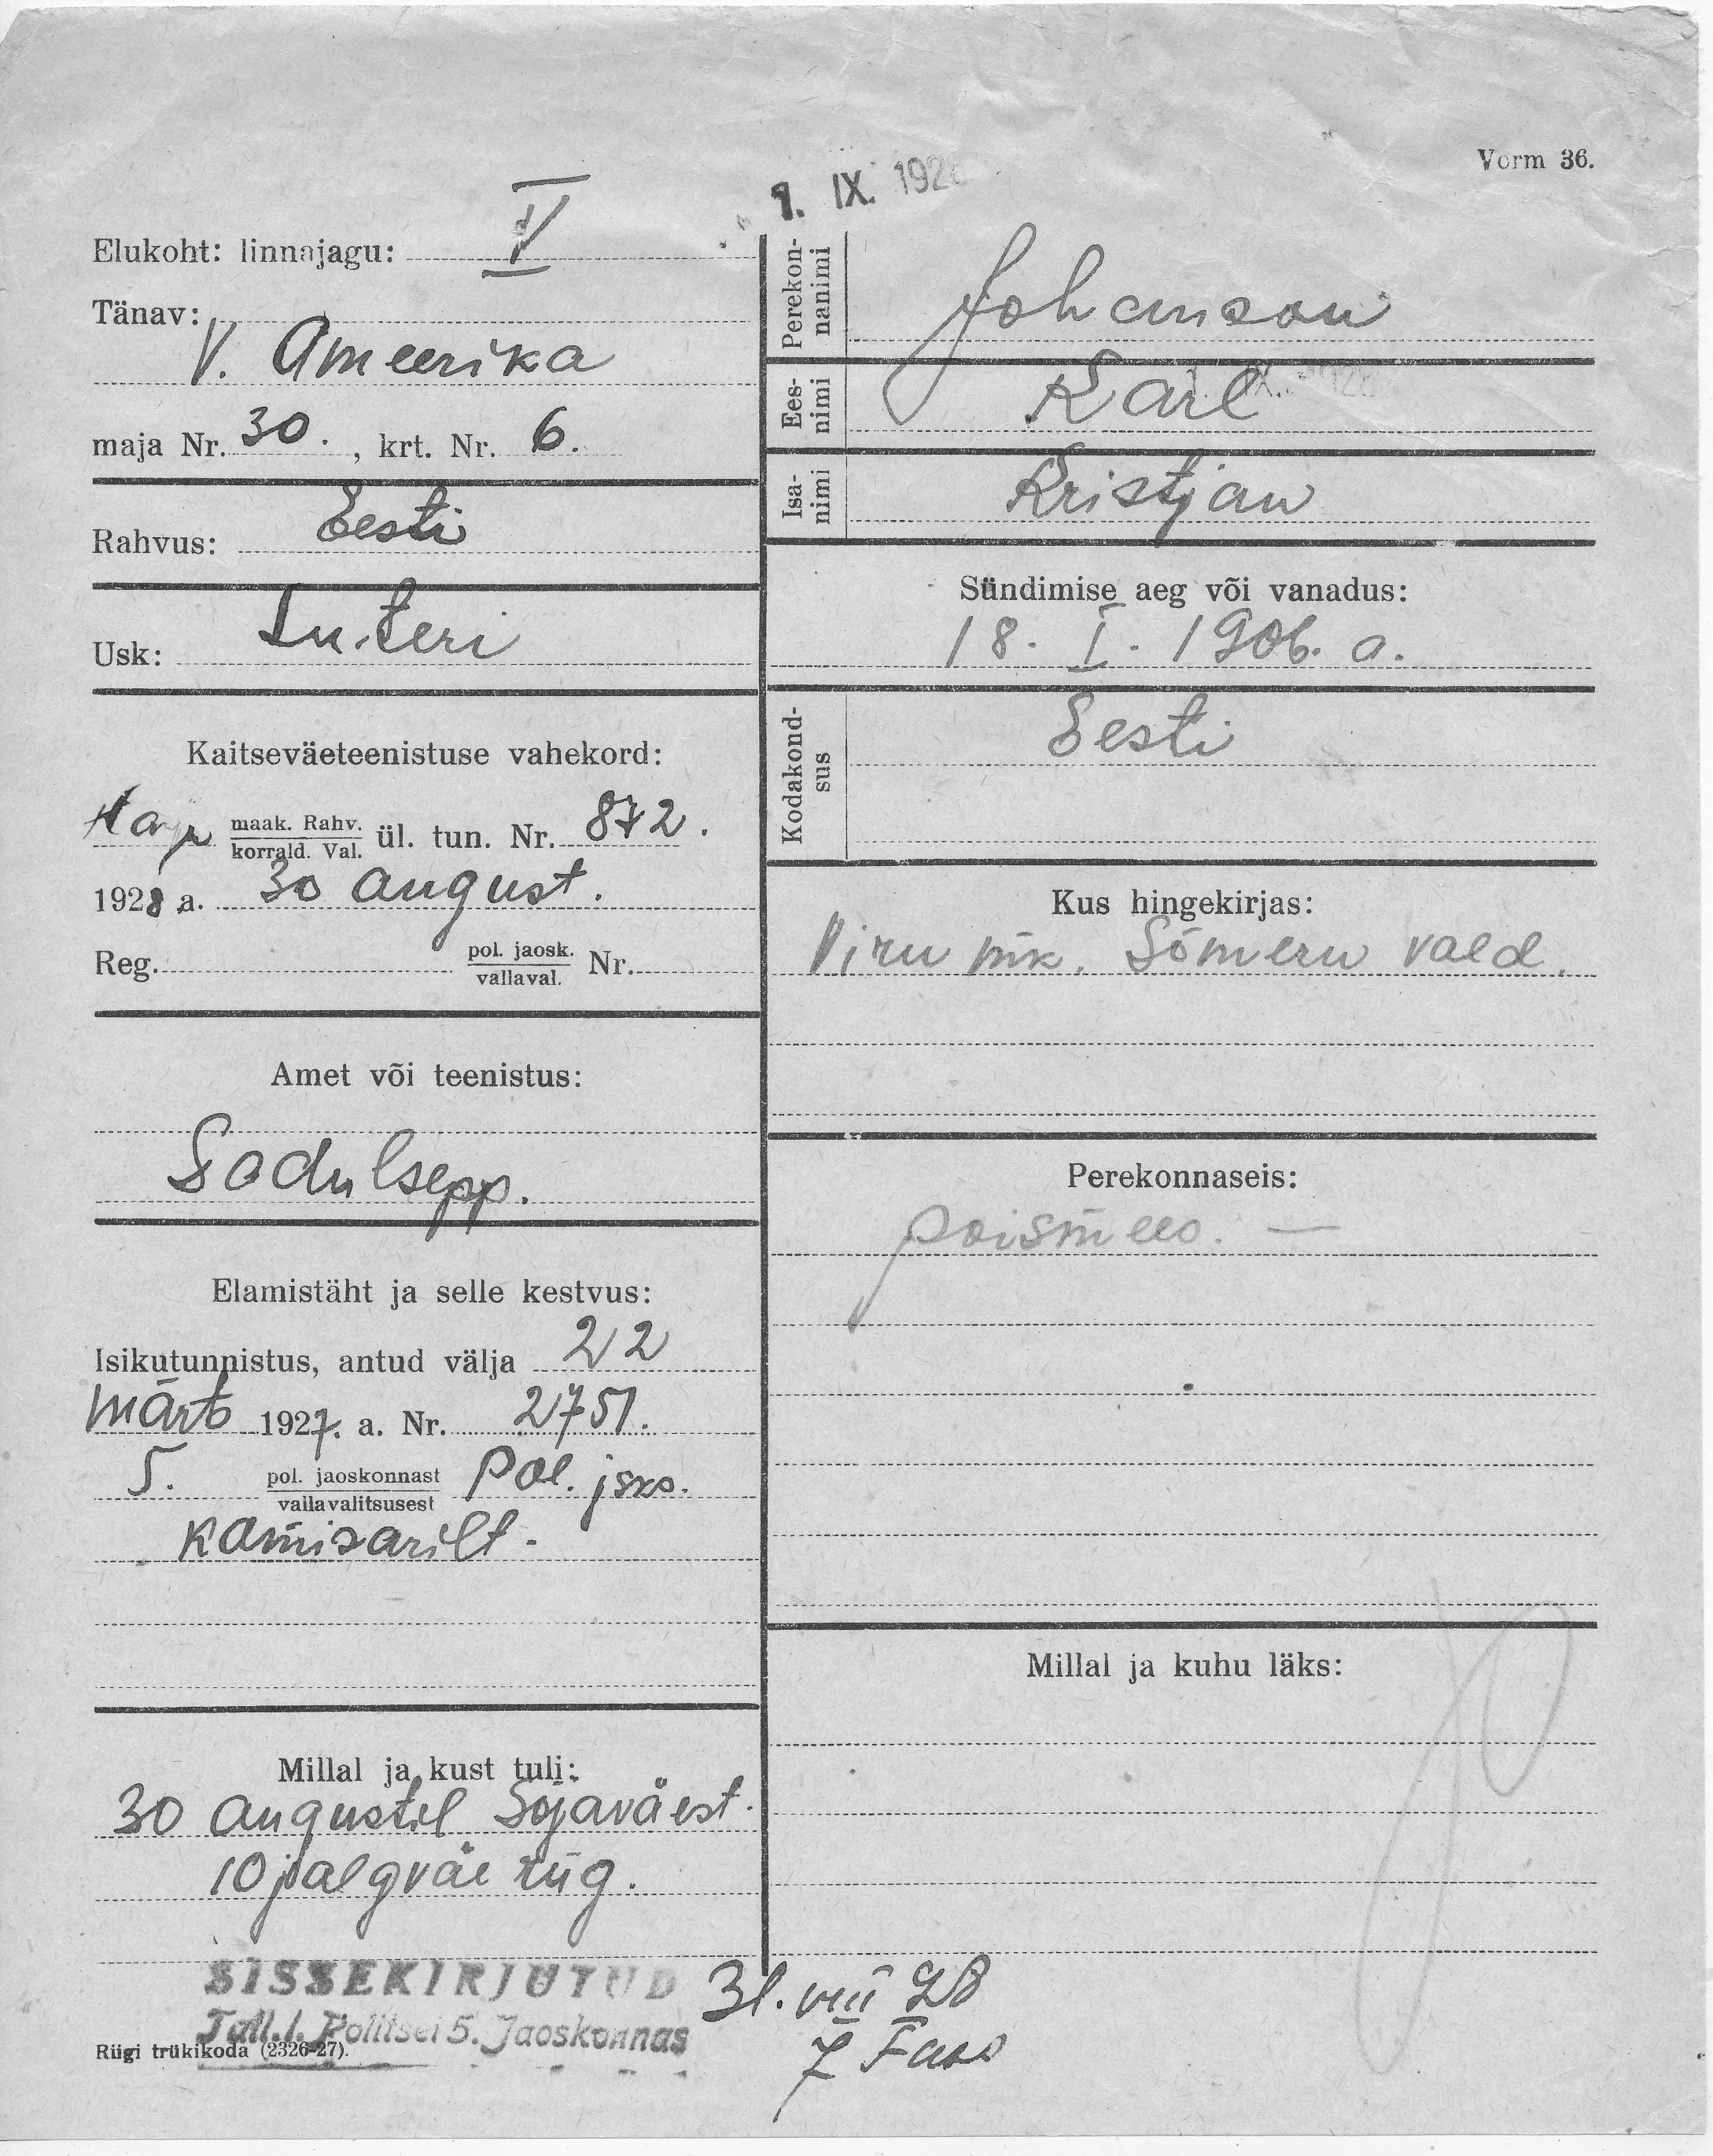 Vorm 36.
1. IX. 192
Elukoht: linnajagu: V
Tänav:
V. Ameerika
maja Nr. 30. , krt. Nr. 6.
Rahvus: Eesti
Usk: Luteri
Kaitseväeteenistuse vahekord:
Harju maak. Rahv. korrald. Val. ül. tun. Nr. 872.
1928 a. 30 august.
Reg. pol. jaosk. vallaval. Nr.
Amet või teenistus:
Sadulsepp.
Elamistäht ja selle kestvus:
Isikutunnistus, antud välja 22
märts 1927. a. Nr. 2751.
5. pol. jaoskonnast vallavalitsusest Pol. jsko.
komisarilt.
Millal ja kust tuli:
30 augustil Sõjaväest.
10 jalgväe rüg.
SISSEKIRJUTUD
Tall. l. Politsei 5. Jaoskonnas
Riigi trükikoda (2326-27).
31. VIII 28
Perekon-
nanimi
Johanson
Ees-
nimi
Karl
Isa-
nimi
Kristjan
Sündimise aeg või vanadus:
18. I. 1906. a.
Kodakond-
sus
Eesti
Kus hingekirjas:
Viru mk. Sõmeru vald.
Perekonnaseis:
poismees. —
Millal ja kuhu läks: